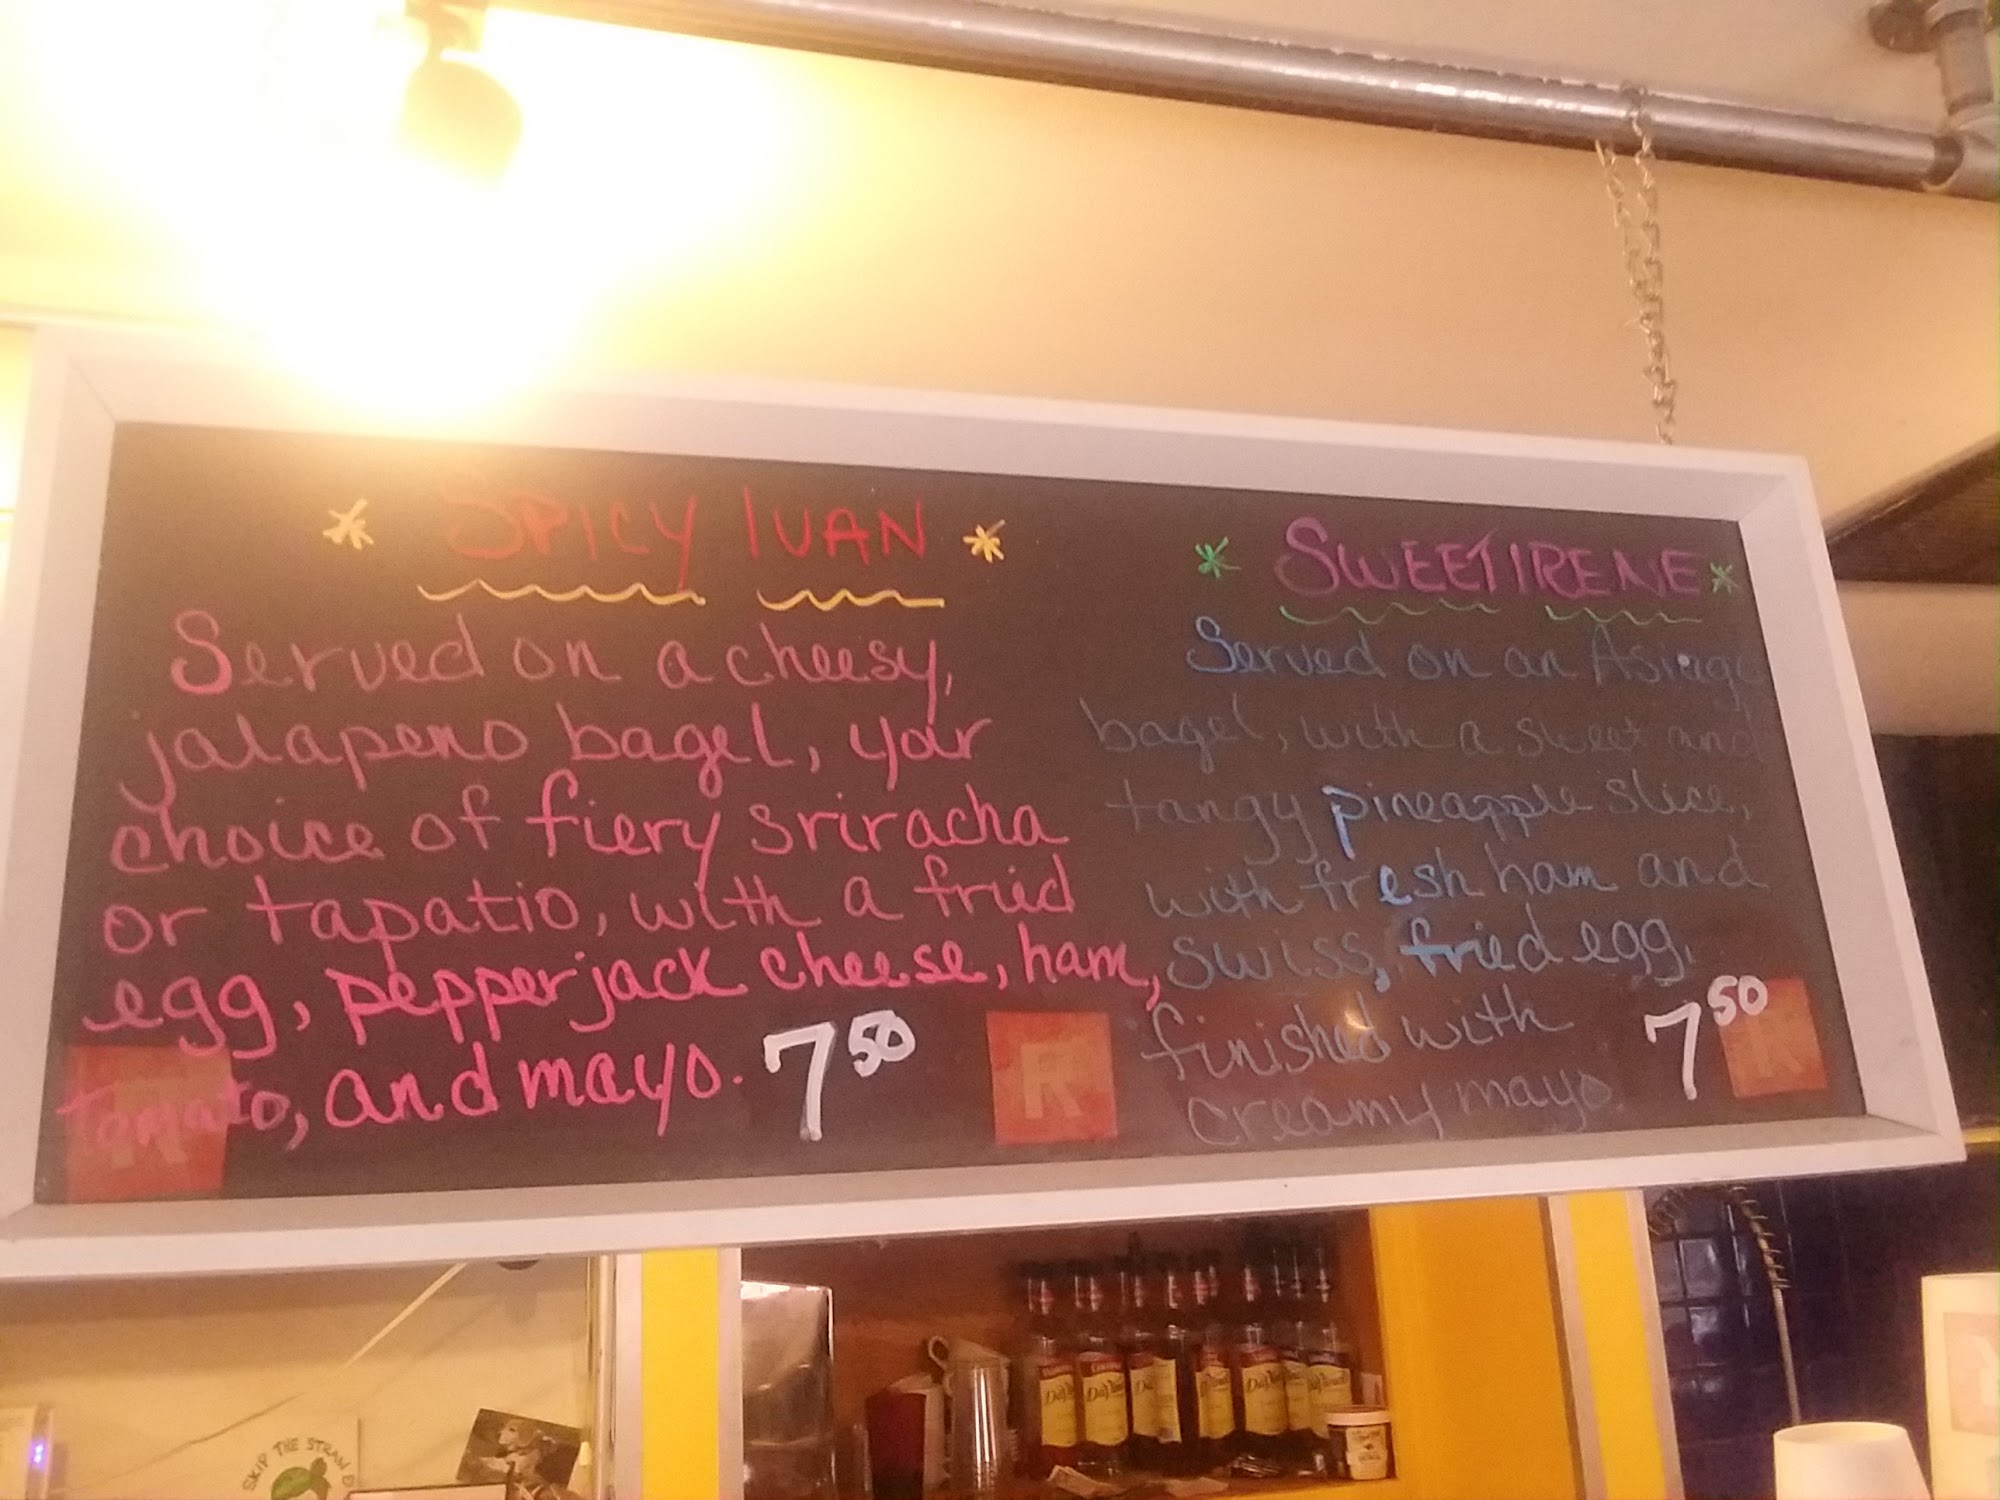 * SPICY IVAN *
Served on a cheesy,
jalapeno bagel, your
choice of fiery sriracha
or tapatio, with a fried
egg, pepperjack cheese, ham,
tomato, and mayo. 7 50
* SWEET IRENE *
Served on an Asiago
bagel, with a sweet and
tangy pineapple slice,
with fresh ham and
swiss, fried egg,
finished with
creamy mayo 7 50
R
R
R
SKIP THE STRAW
DaVinci
DaVinci